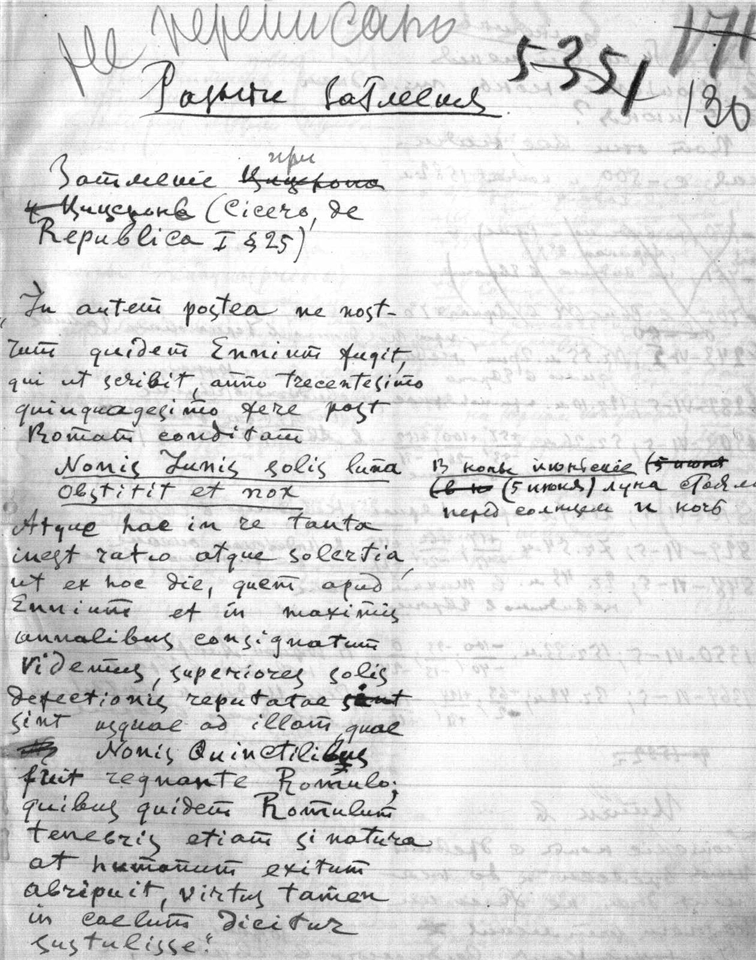 не переписано
5351
171
130
Разные затмения
Затмение Цицерона
при
Цицерона (Cicero, de
Republica I § 25)
"In autem postea ne nost-
rum quidem Ennium fugit,
qui ut scribit, anno trecentesimo
quinquagesimo fere post
Romam conditam
Nonis Junis solis luna
obstitit et nox
В ноны июньские (5 июня
(в ю (5 июня) луна
перед солнцем и ночь
Atque hac in re tanta
inest ratio atque solertia,
ut ex hoc die, quem apud
Ennium et in maximis
annalibus consignatum
videmus, superiores solis
defectionis reputatae sint
sint usque ad illam, quae
Nonis Quinctilibus
fuit regnante Romulo;
quibus quidem Romulum
tenebris etiam si natura
at humanum exitum
abripuit, virtus tamen
in caelum dicitur
sustulisse."